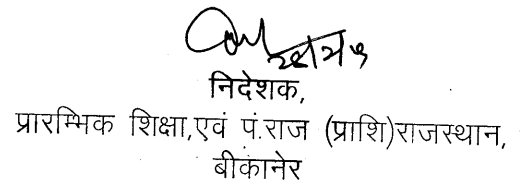 निदेशक,
प्रारम्भिक शिक्षा,एवं पं.राज (प्राशि)राजस्थान,
बीकानेर